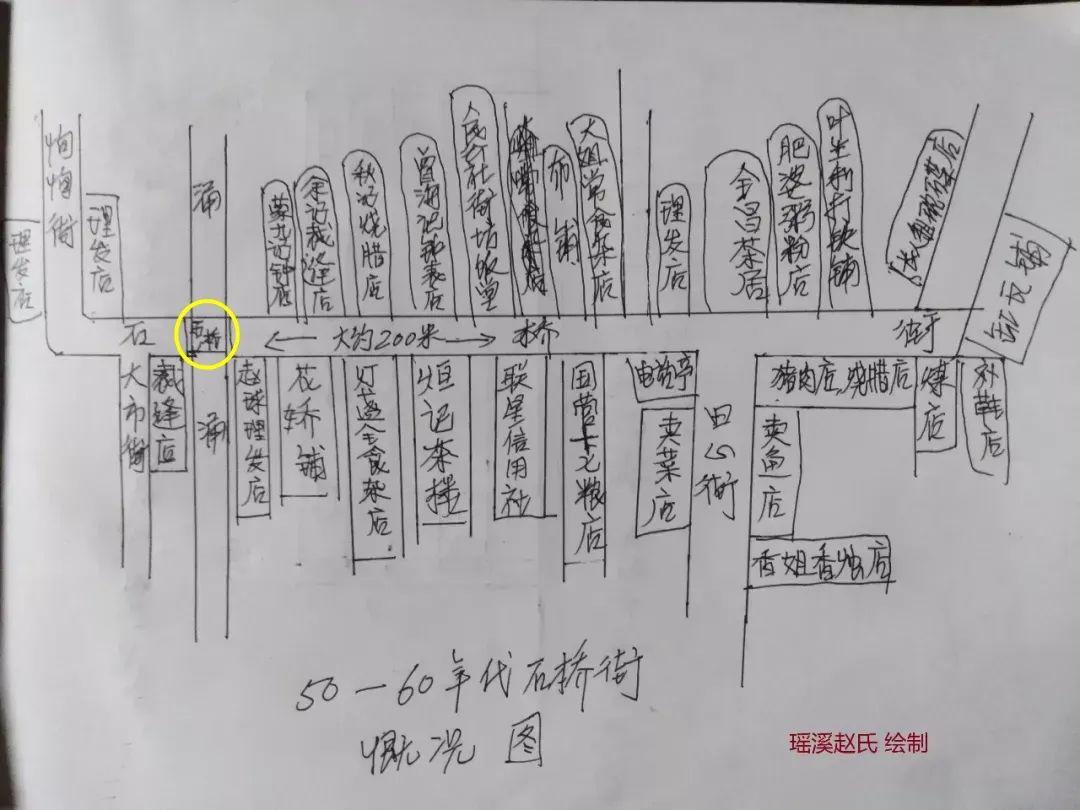 恂恂街
理发店
理发店
涌
余记裁缝店
秋记烧腊店
曾海记钟表店
人民公社街坊饭堂
布铺
大姐棠食杂店
理发店
全昌茶居
肥婆粥粉店
叶生利打铁铺
缸瓦铺
石
石桥
大约200米
桥
街
大市街
裁缝店
涌
赵球理发店
花轿铺
灯盏全食杂店
恒记茶楼
联星信用社
国营土元粮店
电话亭
卖菜店
田心街
猪肉店,烧腊店
煤店
补鞋店
卖鱼店
香姐香烛店
50—60年代石桥街
慨况图
瑶溪赵氏 绘制